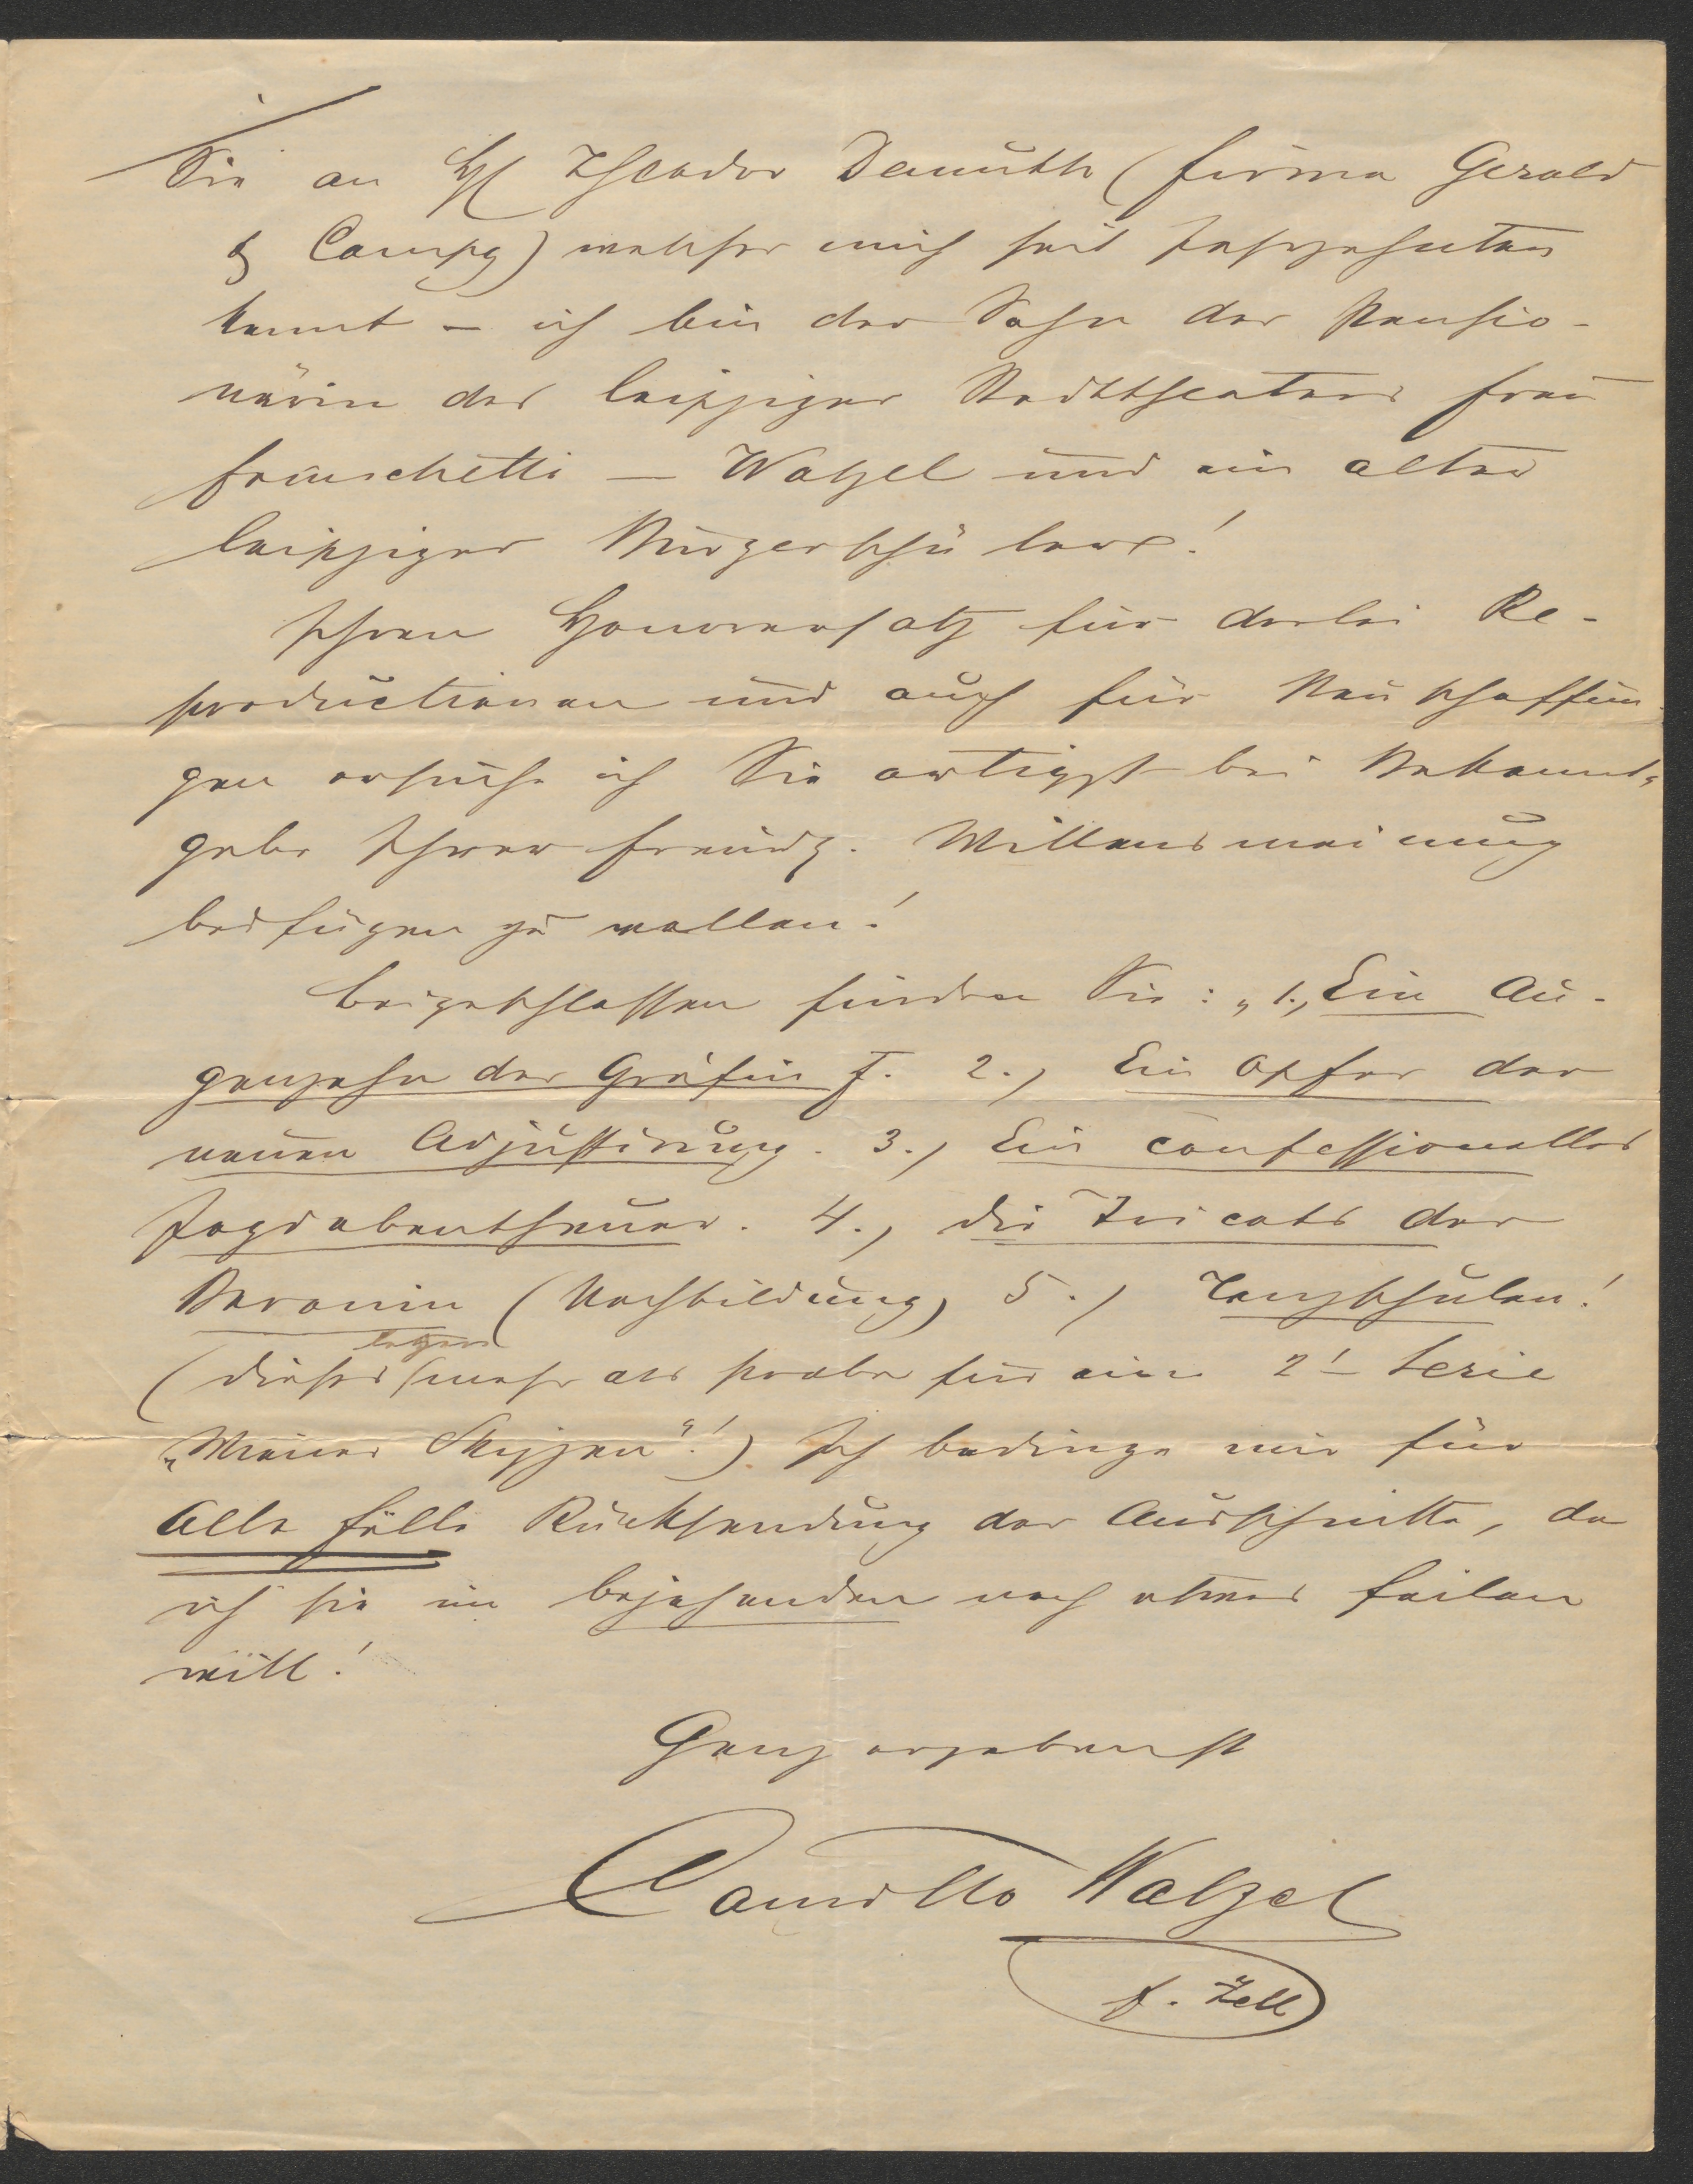 Sie an H Theodor Demuth (Firma Gerold
& Compg) welcher mich seit Jahrzehnten
kennt – ich bin der Sohn der Pensio-
närin des leipziger Stadttheaters Frau
Franchetti – Walzel und ein alter
leipziger Bürgerschüler!
Ihren Honorarsatz für derlei Re-
productionen und auch für Neuschaffun-
gen ersuche ich Sie artigst bei Bekannt-
gabe Ihrer freundl. Willensmeinung
beifügen zu wollen!
Beigeschlossen finden Sie: „1., Ein Au-
genzahn der Gräfin F. 2., Ein Opfer der
neuen Adjustirung. 3., Ein confessionelles
Jagdabentheuer. 4., die Tricots der
Baronin (Nachbildung) 5., Tanzschulen!
letzere
(dieses mehr als Probe für eine 2t Serie
„Wiener Skizzen“!) Ich bedinge mir für
alle Fälle Rücksendung der Ausschnitte, da
ich sie im bejahenden noch etwas feilen
will!
Ganz ergebenst
Camillo Walzel
F. Zell